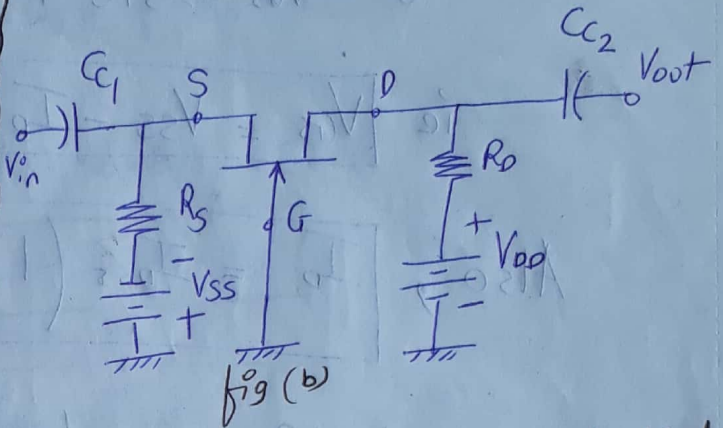 CC1
S
D
CC2
Vout
Vin
RS
G
RD
-
VSS
+
+
VDD
-
fig (b)